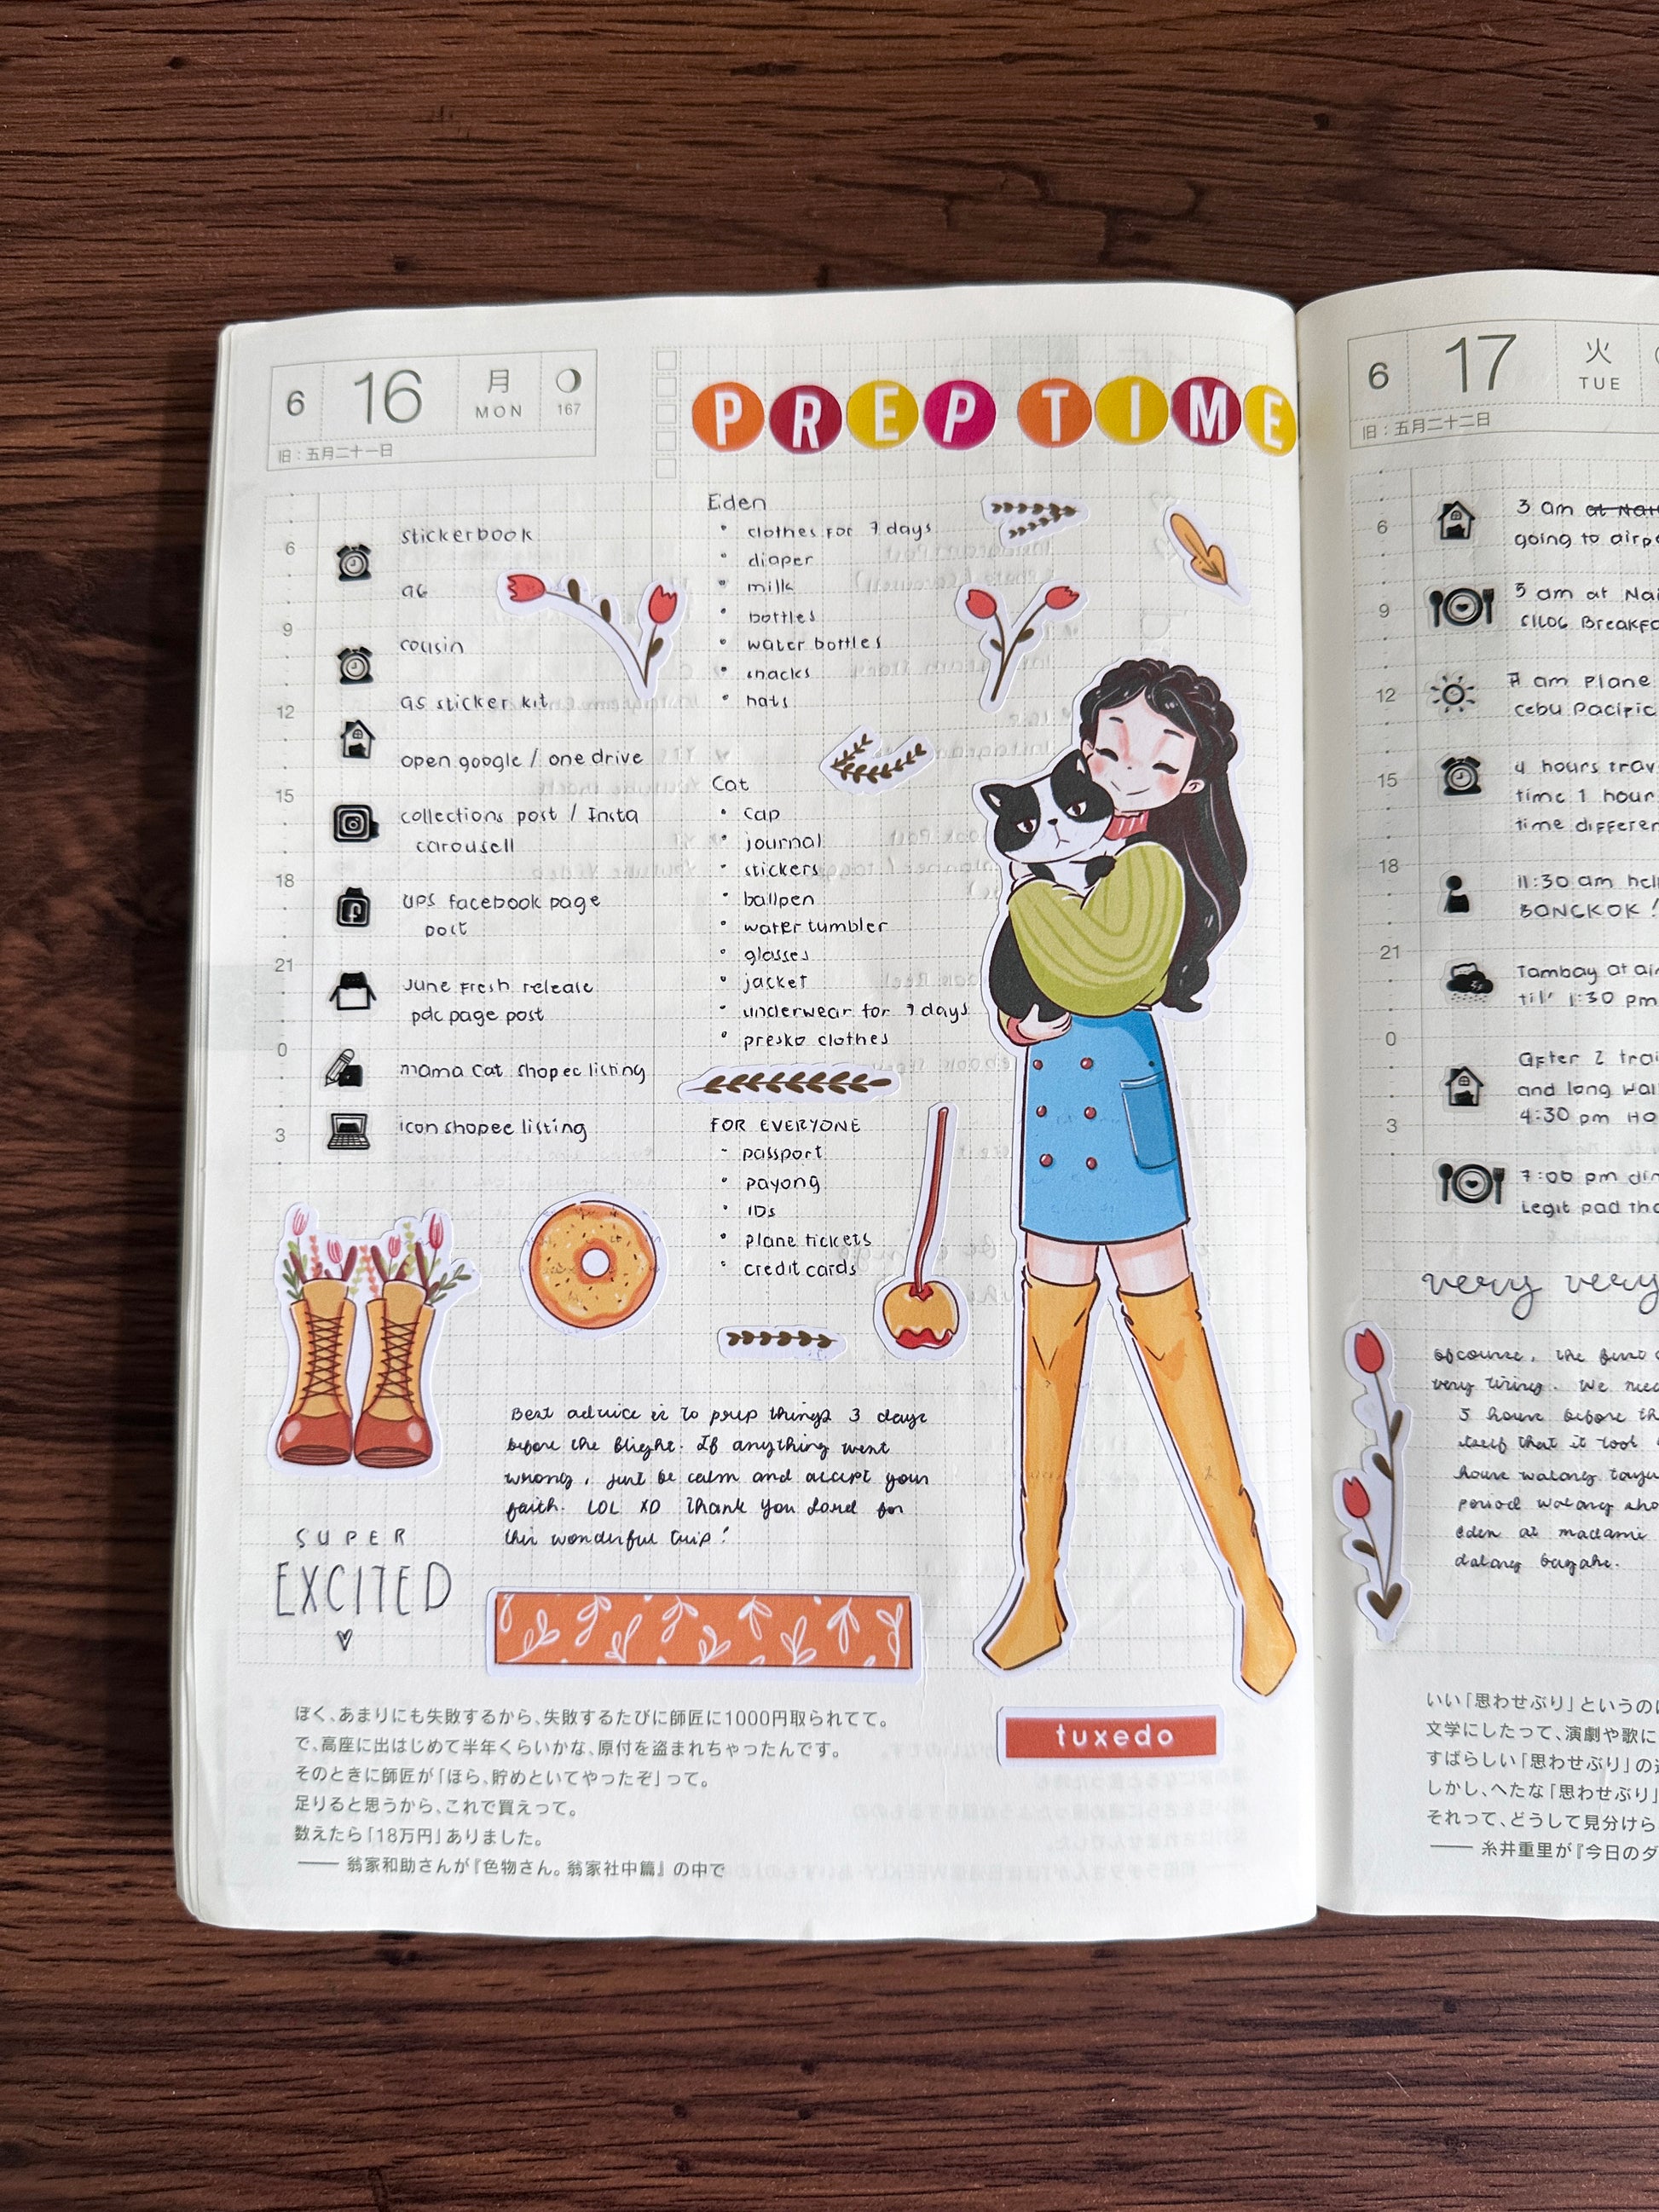 6 16 月 MON 167
旧：五月二十一日
PREP TIME
6
9
12
15
18
21
0
3
stickerbook
a6
cousin
a5 sticker kit
open google / one drive
collections post / Insta
carousell
ups facebook page
post
June Fresh release
pdc page post
mama cat shopee listing
icon shopee listing
Eden
• clothes for 7 days
diaper
• milk
• bottles
• water bottles
• snacks
• hats
Cat
• cap
• journal
• stickers
• ballpen
• water tumbler
• glasses
• jacket
• underwear for 7 days
• presko clothes
FOR EVERYONE
- passport
• payong
• IDs
• plane tickets
• credit cards
Best advice is to prep things 3 days
before the flight. If anything went
wrong, just be calm and accept your
faith. LOL XD Thank you Lord for
this wonderful trip!
SUPER
EXCITED
tuxedo
ぼく、あまりにも失敗するから、失敗するたびに師匠に1000円取られてて。
で、高座に出はじめて半年くらいかな、原付を盗まれちゃったんです。
そのときに師匠が「ほら、貯めといてやったぞ」って。
足りると思うから、これで買えって。
数えたら「18万円」ありました。
—— 翁家和助さんが『色物さん。翁家社中篇』の中で
6 17 火 TUE
旧：五月二十二日
6
9
12
15
18
21
0
3
3 am
going to
5 am at
7 am plane
cebu Pacific
4 hours
time 1 hour
time
11:30 am
BANGKOK !
Tambay at
til' 1:30 pm
After 2
and long
4:30 pm
7:00 pm
Legit pad
very very
ofcourse, the
very tiring. We
3 hours before
itself that it took
hours walang
period walang
Eden at madami
dalang bagahe.
いい「思わせぶり」というのは
文学にしたって、演劇や歌に
すばらしい「思わせぶり」の
しかし、へたな「思わせぶり」
それって、どうして見分けら
—— 糸井重里が『今日のダ